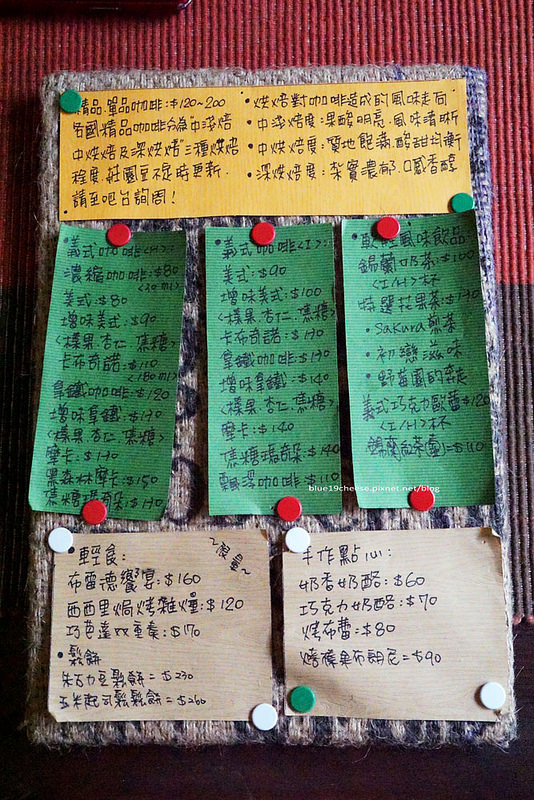 精品.單品咖啡:$120~200
各國精品咖啡分為中淺焙
中烘焙及深烘焙三種烘焙
程度.莊園豆不定時更新.
請至吧台詢問!
•烘焙對咖啡造成的風味走向
•中淺焙度:果酸明亮.風味清晰
•中烘焙度:質地飽滿.酸甜均衡
•深烘焙度:紮實濃郁.口感香醇
•義式咖啡<H>:
濃縮咖啡:$80
<30ml>
美式:$80
增味美式:$90
<榛果.杏仁.焦糖>
卡布奇諾:$110
<180ml>
拿鐵咖啡:$120
增味拿鐵:$130
<榛果.杏仁.焦糖>
摩卡:$130
黑森林摩卡:$150
焦糖瑪奇朵:$130
•義式咖啡<I>:
美式:$90
增味美式:$100
<榛果.杏仁.焦糖>
卡布奇諾:$130
拿鐵咖啡:$130
增味拿鐵:$140
<榛果.杏仁.焦糖>
摩卡:$140
焦糖瑪奇朵:$140
飄浮咖啡:$110
•歐陸風味飲品
錫蘭奶茶:$100
<I/H>杯
特選花果茶:$130
•Sakura煎茶
•初戀滋味
•野莓園的奔走
義式巧克力歐蕾$120
<I/H>杯
錫蘭紅茶(壺)=$110
blue19cheese.pixnet.net/blog
•輕食:
布雷德饗宴:$160
西西里焗烤雜燴:$120
巧芭達双重奏:$170
•鬆餅
朱古力豆鬆餅=$230
玉米起司鬆鬆餅=$260
手作點心:
奶香奶酪:$60
巧克力奶酪:$70
烤布蕾:$80
烤榛果布朗尼=$90